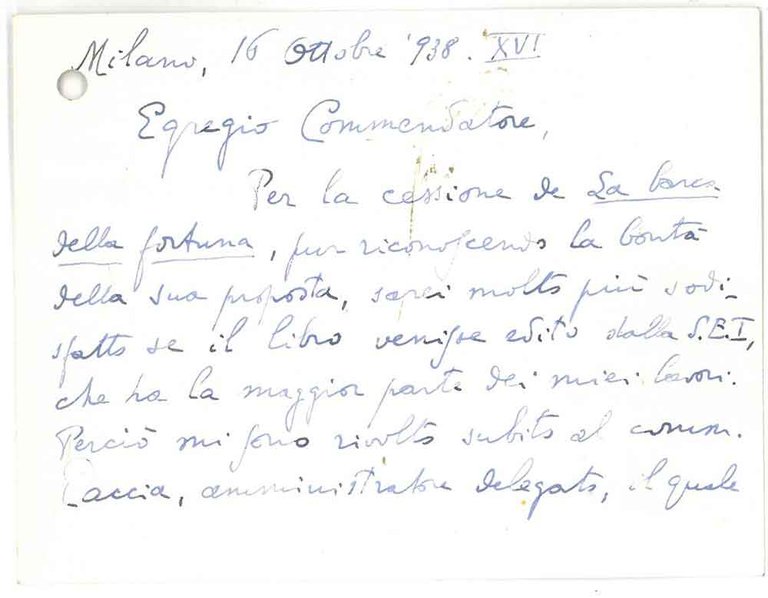 Milano, 16 Ottobre '938. XVI
Egregio Commendatore,
Per la cessione de La barca
della fortuna, pur riconoscendo la bontà
della sua proposta, sarei molto più sodi-
sfatto se il libro venisse edito dalla S.E.I,
che ha la maggior parte dei miei lavori.
Perciò mi sono rivolto subito al comm.
Caccia, amministratore delegato, il quale